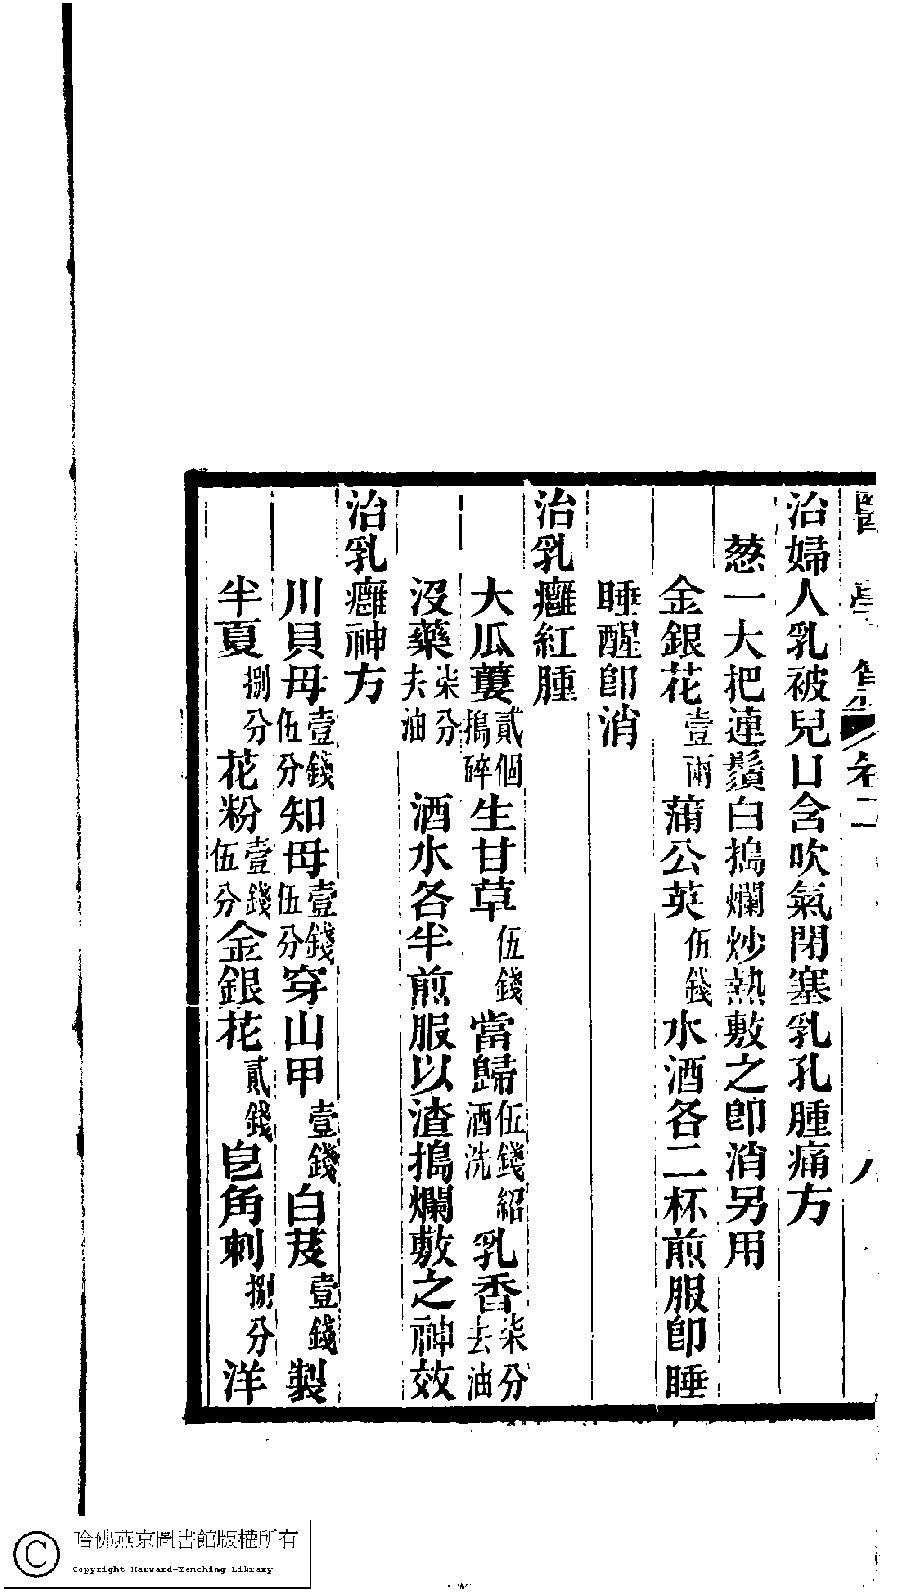 治婦人乳被兒口含吹氣閉塞乳孔腫痛方
葱一大把連鬚白搗爛炒熱敷之卽消另用
金銀花壹兩蒲公英伍錢水酒各二杯煎服卽睡
睡醒卽消
治乳癰紅腫
大瓜蔞貳個搗碎生甘草伍錢當歸伍錢紹酒洗乳香柒分去油
沒藥柒分去油酒水各半煎服以渣搗爛敷之神效
治乳癰神方
川貝母壹錢伍分知母壹錢伍分穿山甲壹錢白芨壹錢製
半夏捌分花粉壹錢伍分金銀花貳錢皀角刺捌分洋
哈佛燕京圖書館版權所有
Copyright Harvard-Yenching Library